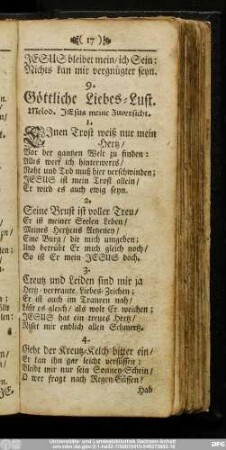 (17)
JESUS bleibet mein/ ich Sein:
Nichts kan mir vergnügter seyn.
9.
Göttliche Liebes-Lust.
Melod. JEsus meine Zuversicht.
1.
EInen Trost weiß nur mein
Hertz/
Vor der gantzen Welt zu finden:
Alles werf ich hinterwerts/
Noht und Tod muß hier verschwinden;
JESUS ist mein Trost allein/
Er wird es auch ewig seyn.
2.
Seine Brust ist voller Treu/
Er ist meiner Seelen Leben/
Meines Hertzens Artzeney/
Eine Burg/ die mich umgeben;
Und betrübt Er mich gleich noch/
So ist Er mein JESUS doch.
3.
Creutz und Leiden sind mir ja
Hertz-vertraute Liebes-Zeichen;
Er ist auch im Trauren nah/
Läst es gleich/ als wolt Er weichen;
JESUS hat ein treues Hertz/
Mischt mir endlich allen Schmertz.
4.
Geht der Kreutz-Kelch bitter ein/
Er kan ihn gar leicht versüssen:
Bleibt mir nur sein Sonnen-Schein/
O wer fragt nach Regen-Güssen/
Hab